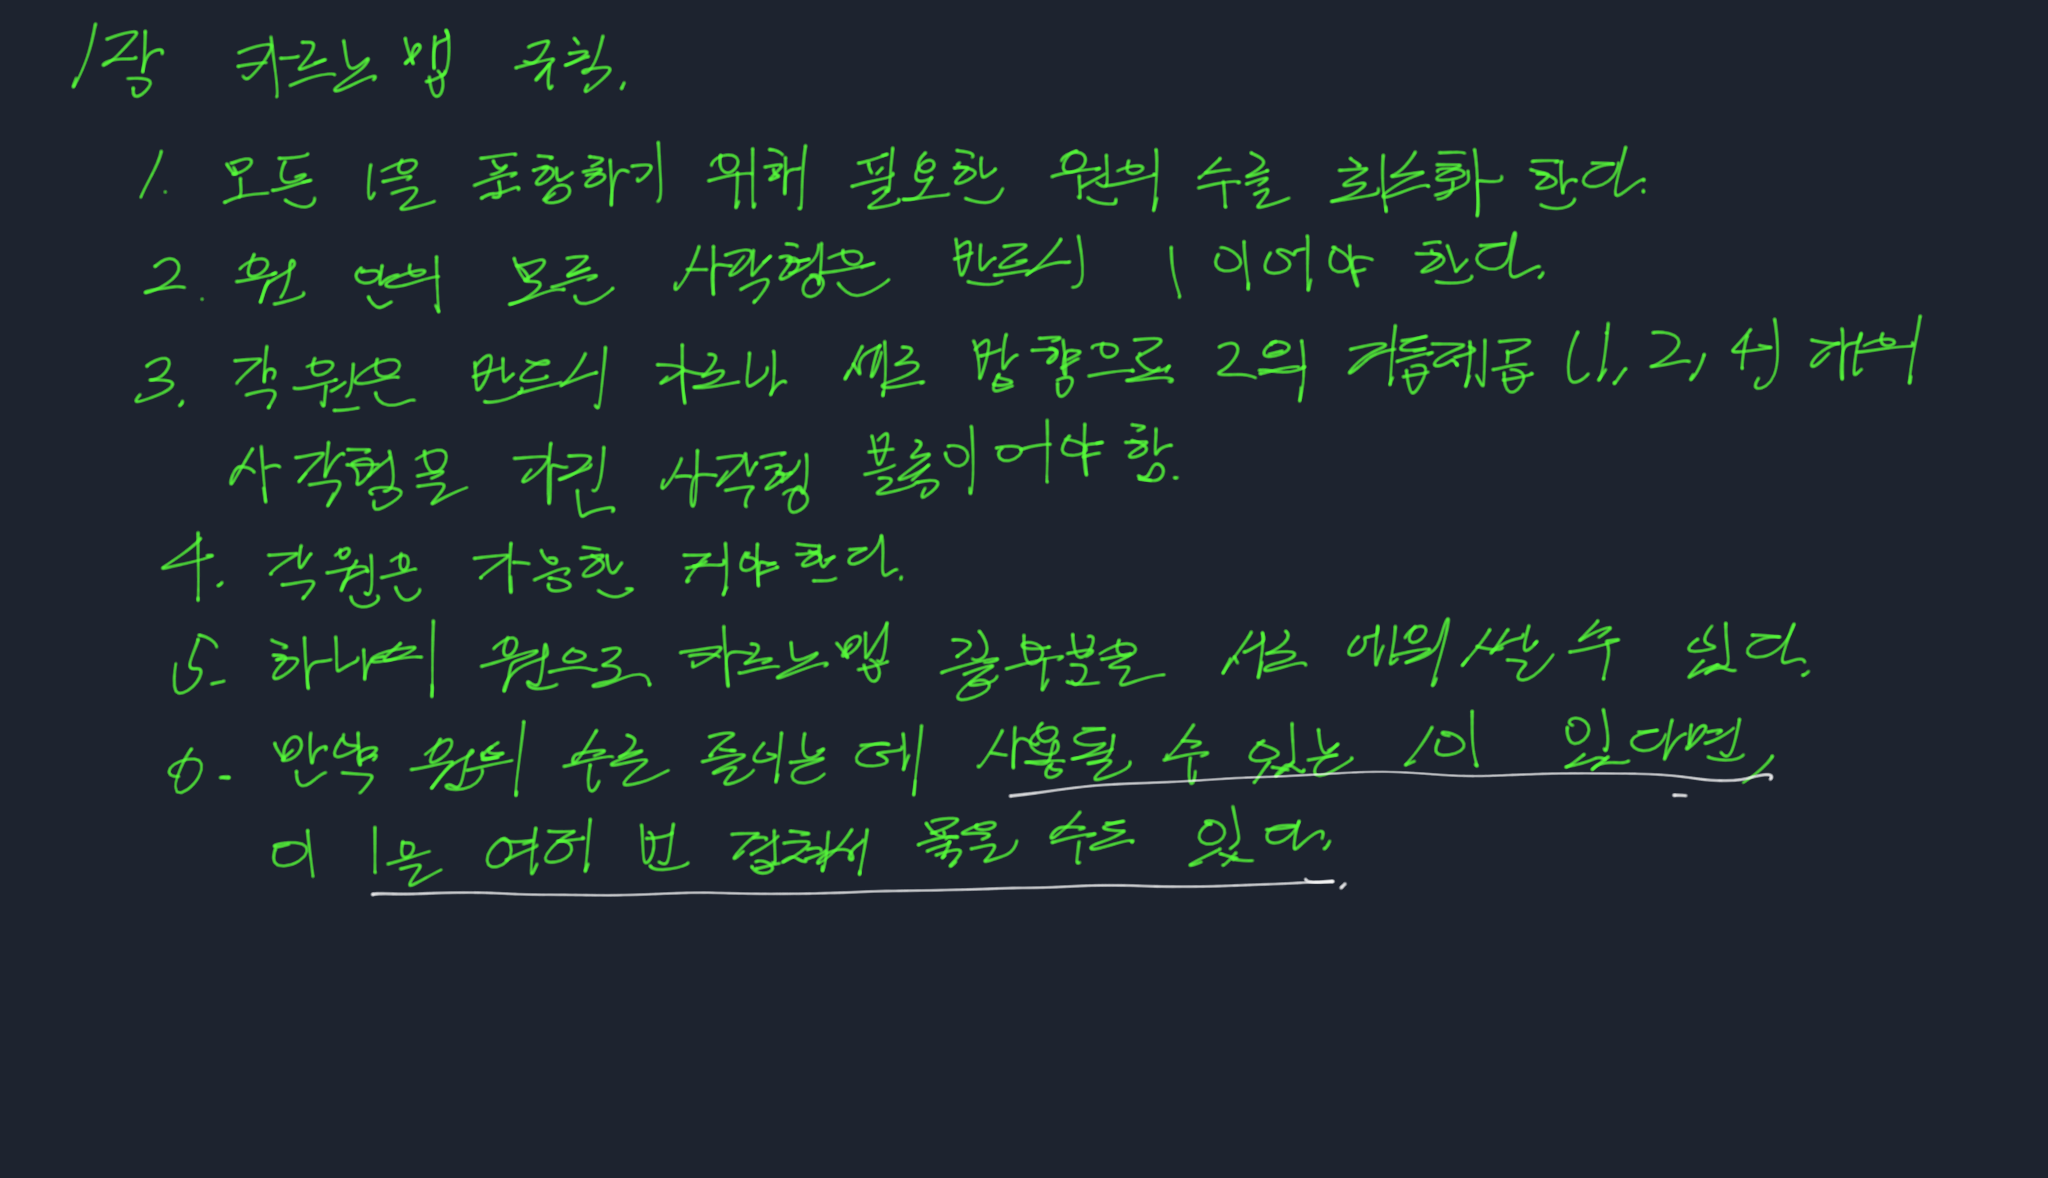 1장 카르노 맵 규칙.
1. 모든 1을 포함하기 위해 필요한 원의 수를 최소화 한다.
2. 원 안의 모든 사각형은 반드시 1이어야 한다.
3. 각 원은 반드시 가로나 세로 방향으로 2의 거듭제곱 (1, 2, 4) 개의
사각형을 가진 사각형 블록이어야 함.
4. 각 원은 가능한 커야 한다.
5. 하나의 원으로 카르노맵 끝부분을 서로 에워쌀 수 있다.
6. 만약 원의 수를 줄이는 데 사용될 수 있는 1이 있다면,
이 1을 여러 번 겹쳐서 묶을 수도 있다.